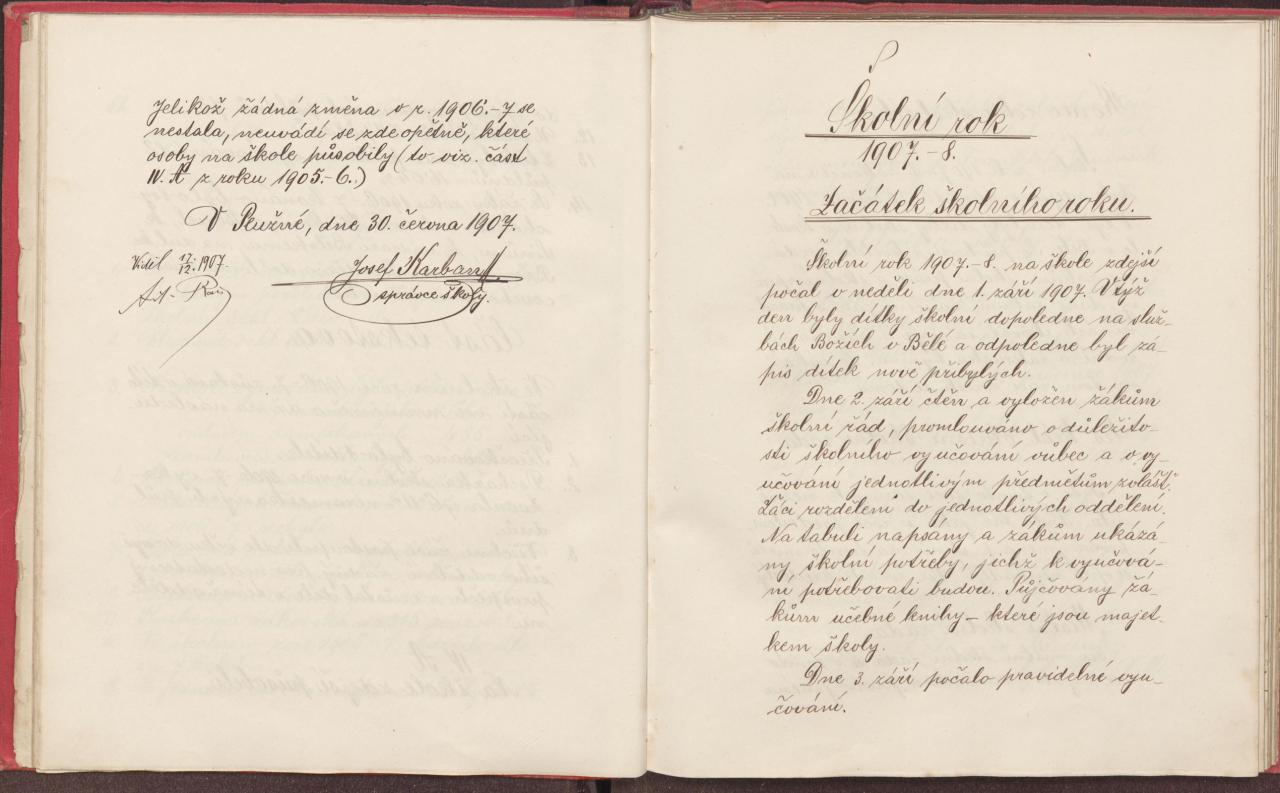 Jelikož žádná změna v r. 1906.-7 se
nestala, neuvádí se zde opětně, které
osoby na škole působily (to viz. část
IV. A z roku 1905.-6.)
V Plužné, dne 30. června 1907.
Viděl 17./12. 1907.
Josef Karban
správce školy.
Školní rok
1907.-8.
Začátek školního roku.
Školní rok 1907.-8. na škole zdejší
počal v neděli dne 1. září 1907. V týž
den byly dítky školní dopoledne na služ-
bách Božích v Bělé a odpoledne byl zá-
pis dítek nově přibylých.
Dne 2. září čtěn a vyložen žákům
školní řád, promlouváno o důležito-
sti školního vyučování vůbec a o vy-
učování jednotlivým předmětům zvlášť.
Žáci rozděleni do jednotlivých oddělení.
Na tabuli napsány a žákům ukázá-
ny školní potřeby, jichž k vyučová-
ní potřebovati budou. Půjčovány žá-
kům učebné knihy - které jsou majet-
kem školy.
Dne 3. září počalo pravidelné vyu-
čování.